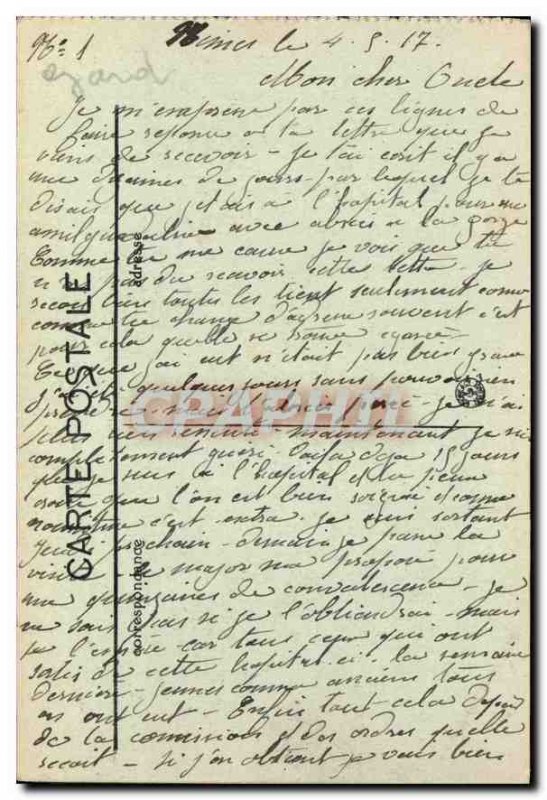 No 1
Nimes le 4. 5. 17.
Mon cher Oncle
Je m'empresse par ces lignes de
faire reponse a ta lettre que je
viens de recevoir - je t'ai ecrit il y a
une dizaines de jours par laquel je te
disais que j'etais a l'hopital pour une
avec abcès a la gorge
Comme ça me cause je vois que tu
n'as pas du recevoir cette lettre - je
recois bien toutes les tiens seulement comme
change d'adresse souvent c'est
pour cela quelle se trouve egarée -
Ce que j'ai eut n'etait pas bien grave
quelques jours sans pouvoir rien
prendre abces percé - je n'ai
plus rien senti - maintenant je suis
completement gueri. Voila deja 15 jours
que je suis a l'hopital et la peine
que l'on est bien soigné et comme
nourriture c'est extra. je suis sortant
Jeudi prochain - dimanche je passe la
visite - le major ma proposé pour
une quinzaines de convalescence - je
ne sais pas si je l'obtiendrai - mais
je l'espère car tous ceux qui ont
sortis de cette hopital ci. la semaine
derniere - jeunes comme anciens tous
en ont eut - Enfin tout cela depend
de la commission et des ordres quelle
recoit - Si j'en obtient je vais bien
CARTE POSTALE
adresse
correspondance
CPAPHIL